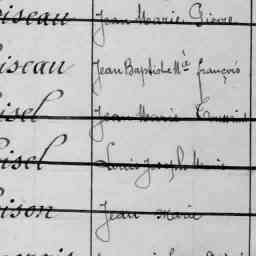 iseau Jean Marie Pierre
iseau Jean Baptiste Mie françois
isel Jean Marie
isel Louis Joseph Marie
ison Jean Marie